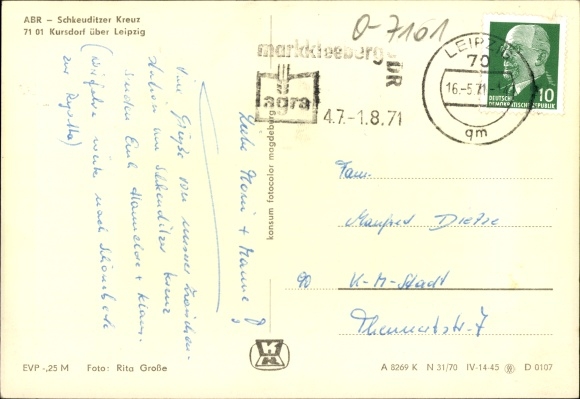 ABR – Schkeuditzer Kreuz
71 01 Kursdorf über Leipzig
0-7101
markkleeberg
DDR
agra
4.7.-1.8.71
LEIPZIG
70
16.-5.71
qm
DEUTSCHE
DEMOKRATISCHE REPUBLIK
10
Liebe Romi + Manne!
Viele Grüße von unserer Zwischen-
station am Schkeuditzer Kreuz
senden Euch Hannelore + Klaus.
(Wir fahren weiter nach Schönebeck
zur Regatta)
konsum fotocolor magdeburg
Fam.
Manfred Dietze
90 K-M-Stadt
str. 7
EVP -,25 M Foto: Rita Große
A 8269 K N 31/70 IV-14-45 D 0107